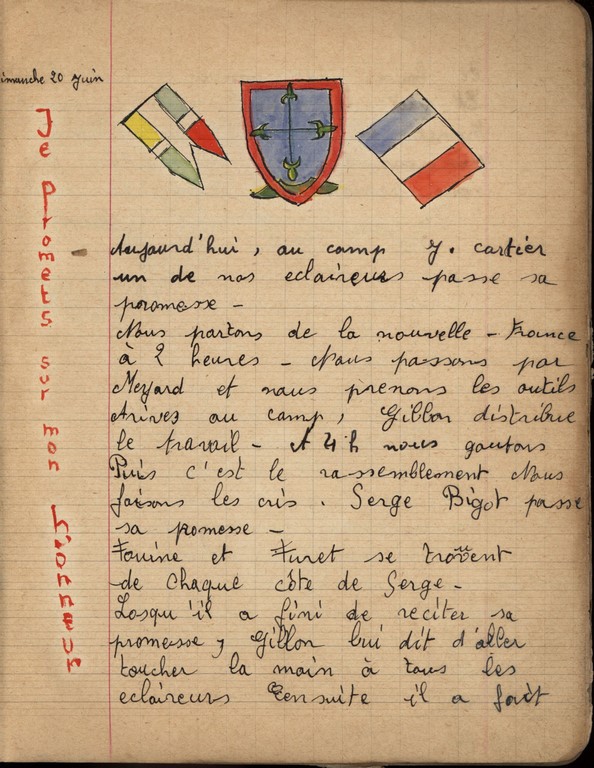 imanche 20 Juin
Je promets sur mon honneur
Aujourd'hui, au camp J. cartier
un de nos eclaireurs passe sa
poromesse -
Nous partons de la nouvelle - France
à 2 heures - Nous passons par
Meyard et nous prenons les outils
Arives au camp, Gillon distribue
le travail - A 4 h nous goutons
Puis c'est le rassemblement Nous
faisons les cris. Serge Bigot passe
sa promesse -
Fouine et Furet se trouvent
de chaque côte de Serge -
Losqu'il a fini de reciter sa
promesse, Gillon lui dit d'aller
toucher la main à tous les
eclaireurs Eensuite il a fait